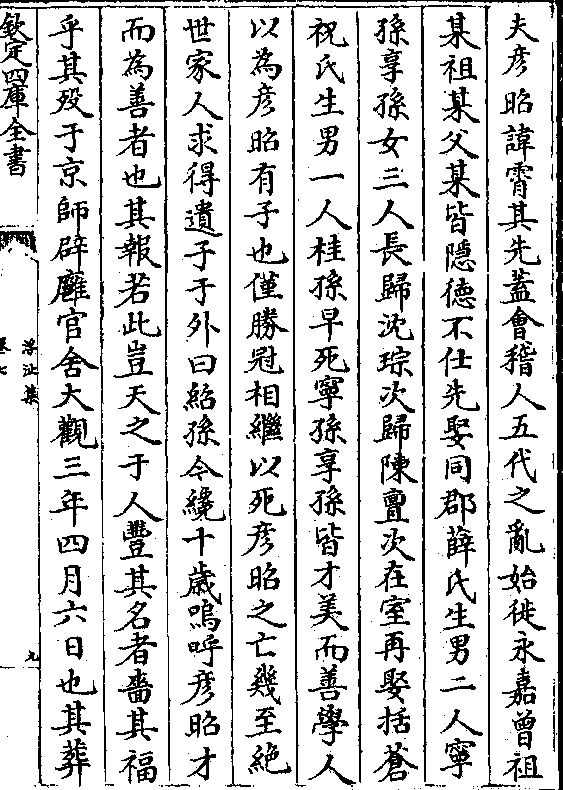 夫彦昭諱霄其先蓋會稽人五代之亂始徙永嘉曾祖
某祖某父某皆隠德不仕先娶同郡薛氏生男二人寧
孫享孫女三人長歸沈琮次歸陳亶次在室再娶括蒼
祝氏生男一人桂孫早死寧孫享孫皆才美而善學人
以為彦昭有子也僅勝冠相繼以死彦昭之亡幾至絶
世家人求得遺子于外曰紹孫今纔十歳嗚呼彦昭才
而為善者也其報若此豈天之于人豐其名者嗇其福
乎其殁于京師辟廱官舍大觀三年四月六日也其葬
欽定四庫全書
浮沚集
卷七
九